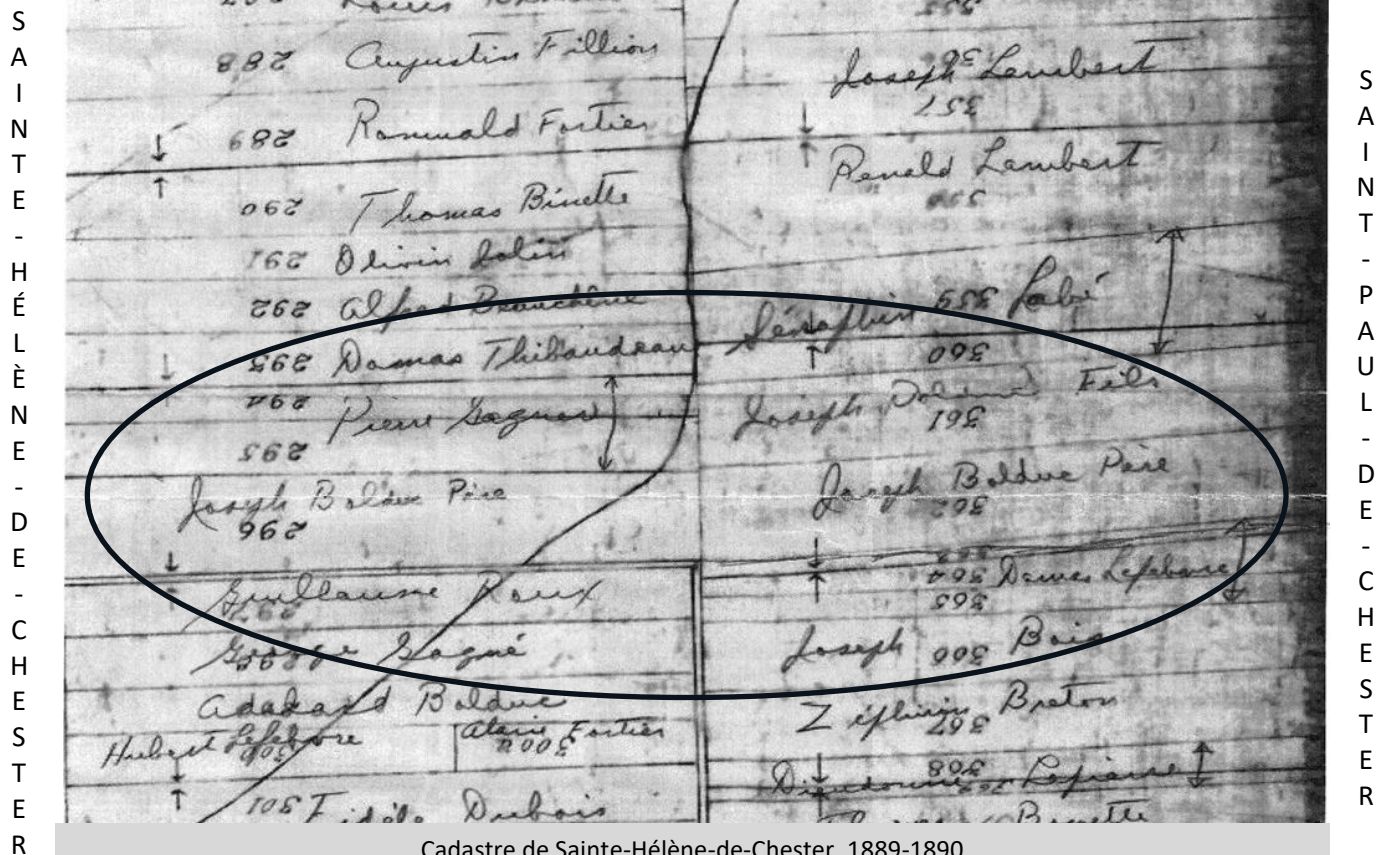 SAINTE-HÉLÈNE-DE-CHESTER
288 Augustin Fillion
289 Romuald Fortier
290 Thomas Binette
291 Olivin
292 Alfred Beauchêne
293 Damas Thibaudeau
294
Pierre Gagnon
295
Joseph Bolduc Père
296
Guillaume Roux
297
George Gagné
Adalard Bolduc
Hubert Lefebvre
Fortier
301 Fidèle Dubois
Joseph Lambert
357
Renald Lambert
Séraphin 359 Labé
360
Joseph Fils
361
Joseph Bolduc Père
362
364 Damas Lefebvre
365
Joseph 366 Bois
Zéphirin Breton
367
368
SAINT-PAUL-DE-CHESTER
Cadastre de Sainte-Hélène-de-Chester, 1889-1890